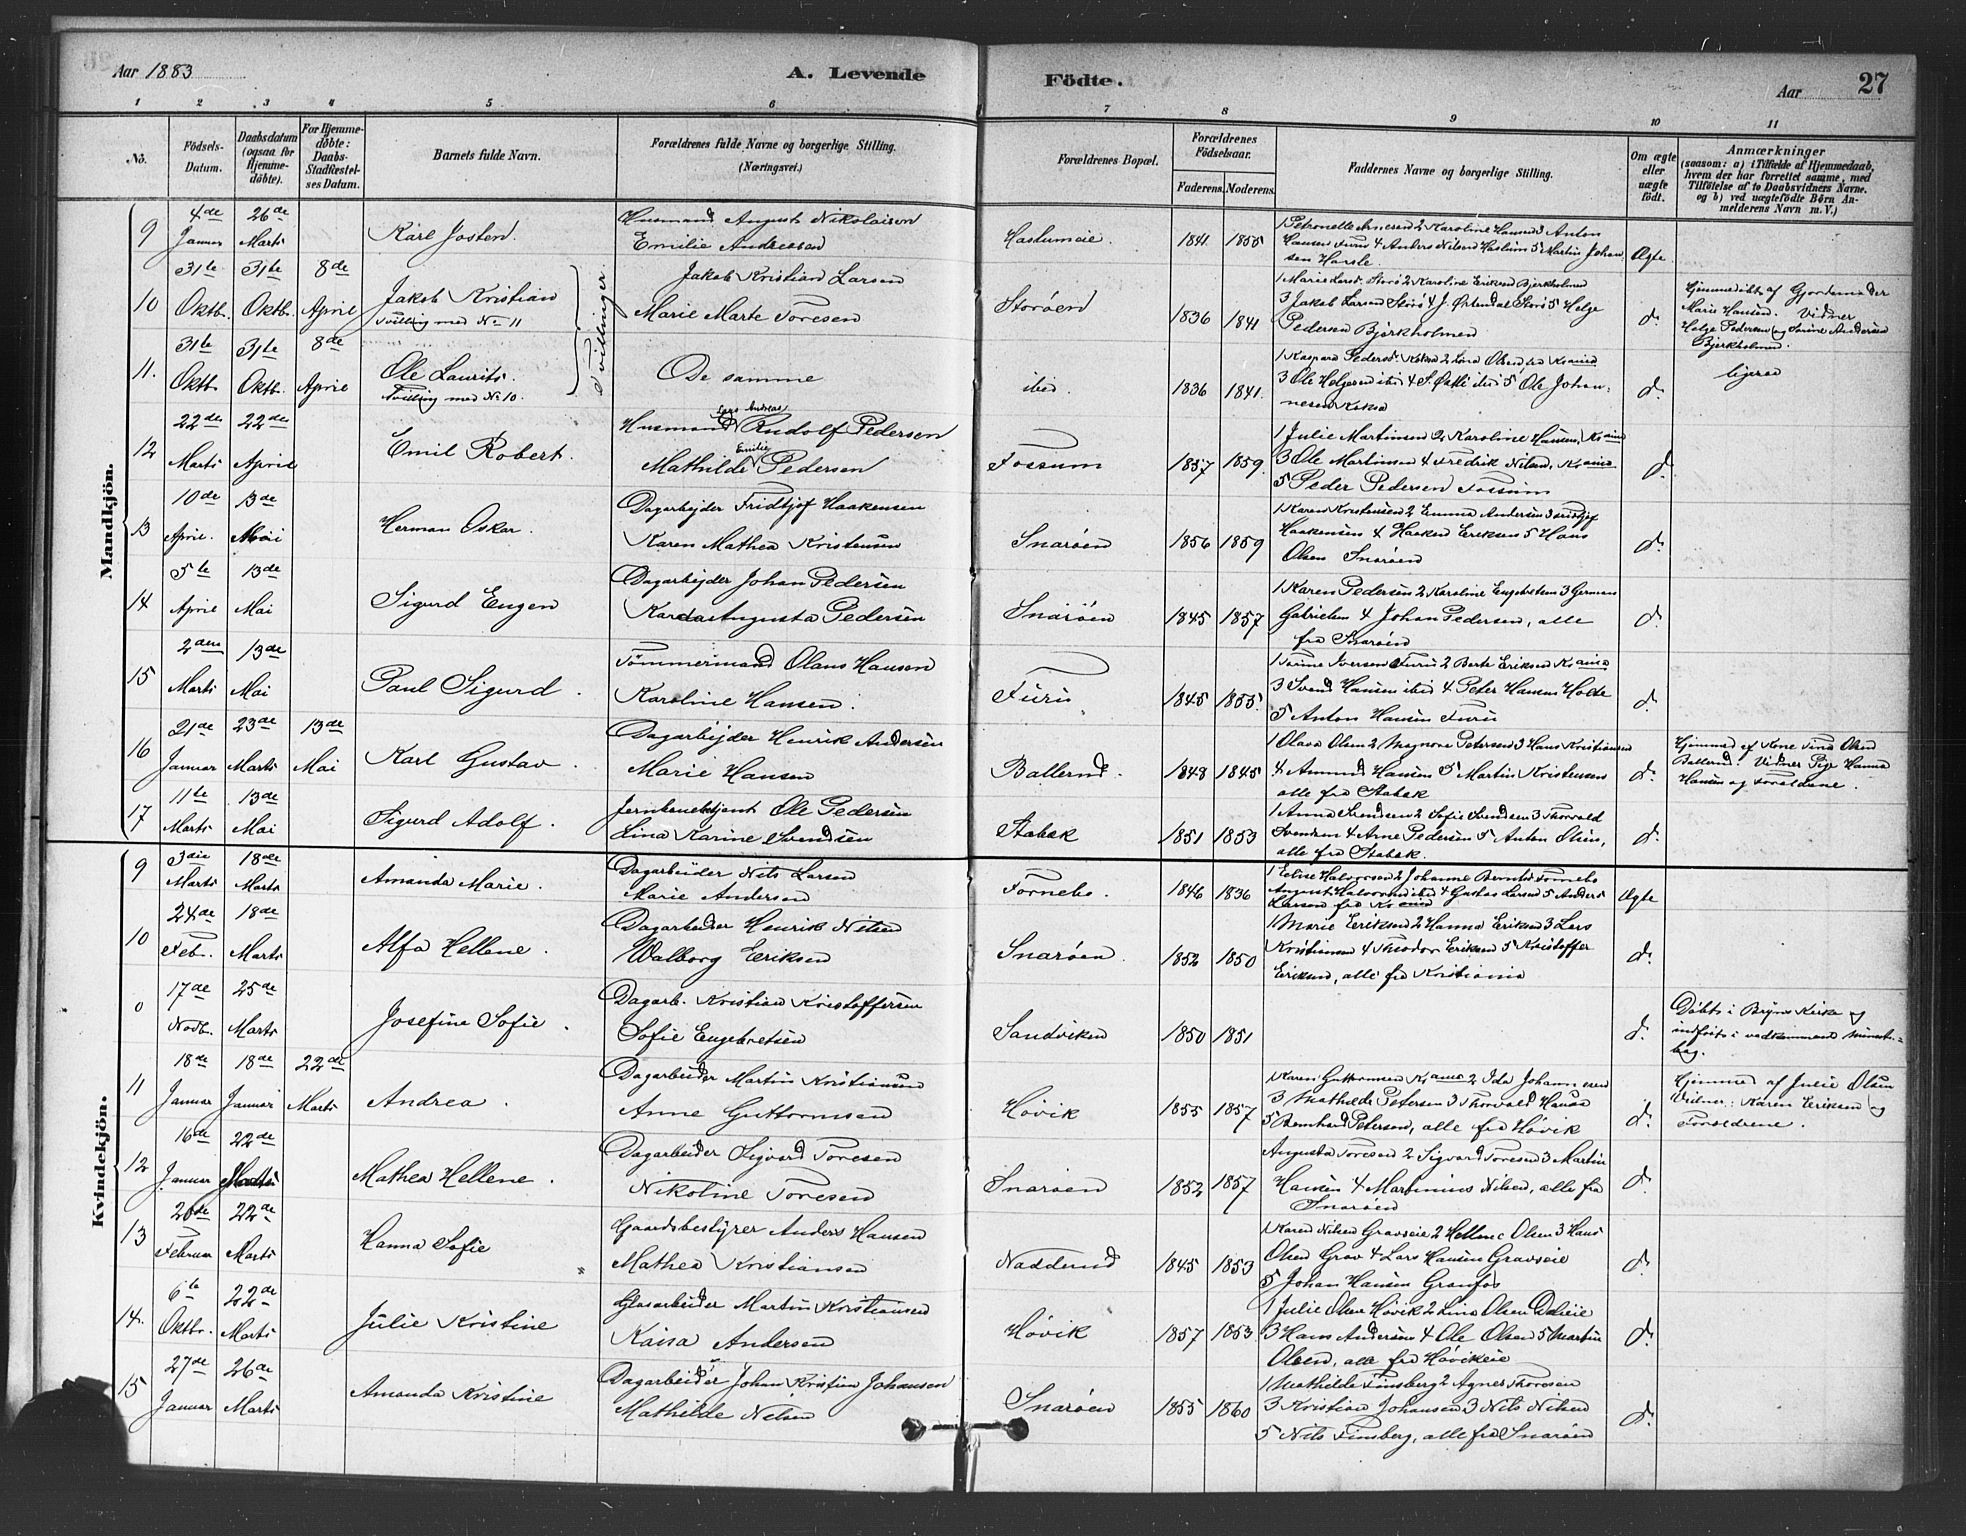 Aar 1883
A. Levende
Födte.
Aar
27
1 2 3 4 5 6 7 8 9 10 11
No.
Födsels-
Datum.
Daabsdatum
(ogsaa for
Hjemme-
døbte).
For Hjemme-
døbte:
Daabs-
Stadfæstel-
ses Datum.
Barnets fulde Navn.
Forældrenes fulde Navne og borgerlige Stilling.
(Næringsvei.)
Forældrenes Bopæl.
Forældrenes
Födselsaar.
Faderens. Moderens.
Faddernes Navne og borgerlige Stilling.
Om ægte
eller
uægte
født.
Anmærkninger
(saasom: a) i Tilfælde af Hjemmedaab,
hvem der har forrettet samme, med
Tilföielse af to Daabsvidners Navne.
og b) ved uægtefödte Börn An-
melderens Navn m. V.)
Mandkjön.
9 4de Januar 26de Marts Karl Josten.
Husmand August Nikolaisen
Emilie Andreasen
1841 1855
1 Petronelle 2 Karoline Hansen 3 Anton
Hansen Furu 4 Anders Nilsen Haslum 5 Martin Johan
sen Ægte
10 31te Oktb. 31te Oktb. 8de April Jakob Kristian
Tvilling med No 11
Tvillinger
Jakob Kristian Larsen
Marie Marte Toresen
Storöen 1836 1841
1 Marie Storö 2 Karoline Eriksen Bjerkholmen
3 Jakob Larsen Storö 4 J. Storö 5 Helge
Pedersen Björkholmen
d.
Hjemmedöbt af Gjordemoder
Marie Hansen. Vidner
Helge Pedersen og Andersen
Bjerkholmen.
11. 31te Oktb. 31te Oktb. 8de April Ole Laurits.
Tvilling med No 10.
De samme
ibid. 1836 1841.
3 Ole Helgesen ibid 4 ibid 5 Ole Johan-
nesen
d.
ligesaa
12 22de Marts 22de April Emil Robert.
Lars Andreas
Husmand Rudolf Pedersen
Emilie
Mathilde Pedersen
Fossum 1857 1859.
1 Julie Martinsen 2 Karoline Hansen,
3 Ole Martinsen 4 Fredrik Nilsen,
5 Peder Pedersen Fossum
d.
13 10de April. 13de Mai Herman Oskar.
Dagarbejder Fridtjof Haakensen
Karen Mathea Kristensen
Snaröen 1856 1859
1 Karen Kristensen 2 Emma Andersen 3 Fridtjof
Haakensen 4 Haaken Eriksen 5 Hans
Olsen Snaröen
d.
14 5te April 13de Mai Sigurd Eugen
Dagarbejder Johan Pedersen
Augusta Pedersen
Snaröen 1845 1857
1 Karen Pedersen 2 Karoline Engebretsen 3 Herman
Gabrielsen 4 Johan Pedersen, alle
fra Snaröen
d.
15 2den Marts 13de Mai Paul Sigurd.
Tömmermand Olaus Hansen
Karoline Hansen.
Furu 1845 1855.
1 Torine Iversen Furu 2 Berte Eriksen
3 Svend Hansen ibid 4 Peter Hansen Holte
5 Anton Hansen Furu
d.
16 21de Januar 23de Marts 13de Mai Karl Gustav.
Dagarbejder Henrik Andersen
Marie Hansen
Ballerud. 1848 1845
1 Olava Olsen 2 Petersen 3 Hans Kristiansen
4 Amund Hansen 5 Martin Kristensen
alle fra Stabæk
d.
Hjemmed af Kone Tina Olsen
Ballerud. Vidner Pige Hanna
Hansen og Forældrene.
17 11te Marts 13de Mai Sigurd Adolf.
Jernbanebetjent Ole Pedersen
Lina Karine Svendsen
Stabæk 1851 1853
1 Anna Svendsen 2 Sofie Svendsen 3 Thorvald
Svendsen 4 Arne Pedersen 5 Anton Olsen,
alle fra Stabæk.
d.
Kvindekjön.
9 3die Marts 18de Marts Amanda Marie.
Dagarbeider Nils Larsen
Marie Andersen
Fornebo. 1846 1836
1 Halvorsen 2 Johanne Berntsen Fornebo
August Halvorsen ibid 4 Gustav Larsen 5 Anders
Larsen fra
Ægte
10 24de Feb. 18de Marts Alfa Hellene.
Dagarbeider Henrik Nilsen
Walborg Eriksen
Snaröen. 1852 1850
1 Marie Eriksen 2 Hanna Eriksen 3 Lars
Kristiansen 4 Theodor Eriksen 5 Kristoffer
Eriksen, alle fra Kristiania
d.
0 17de Novb. 25de Marts Josefine Sofie.
Dagarb. Kristian Kristoffersen
Sofie Engebretsen
Sandviken 1850 1851
d.
Döbt i Bryns Kirke og
indfört i vedkommende minist.-
bog.
11 18de Januar 18de Januar 22de Marts Andrea.
Dagarbeider Martin Kristiansen
Anne Guttormsen
Hövik 1855 1857
1 Karen Guttormsen 2 Ida Johannesen
3 Mathilde Petersen 3 Thorvald Hansen
5 Bernhard Petersen, alle fra Hövik
d.
Hjemmed af Julie Olsen
Vidner: Karen Eriksen og
Forældrene.
12 16de Januar 22de Marts Mathea Hellene.
Dagarbeider Sigvard Toresen
Nikoline Toresen
Snaröen 1852 1857
Augusta Toresen 2 Sigvard Toresen 3 Martin
Hansen 4 Martinius Nilsen, alle fra
Snaröen
d.
13 26de Februar 22de Marts Hanna Sofie
Gaardsbestyrer Anders Hansen
Mathea Kristiansen
Nadderud 1845 1853
1 Karen Nilsen Gravseie 2 Hellene Olsen 3 Hans
Olsen Grav 4 Lars Hansen Gravseie
5 Johan Hansen Granfos
d.
14. 6te Oktbr. 22de Marts Julie Kristine
Glasarbeider Martin Kristiansen
Kaisa Andersen
Hövik 1857 1853
1 Julie Olsen Hövik 2 Lina Olsen
3 Hans Andersen 4 Ole Olsen 5 Martin
Olsen, alle fra Hövikeie
d.
15 27de Januar 26de Marts Amanda Kristine
Dagarbeider Johan Kristian Johansen
Mathilde Nilsen
Snaröen 1855 1860
1 Mathilde Finsberg 2 Agnes Thoresen
3 Kristian Johansen 3 Nils Nilsen
5 Nils Finsberg, alle fra Snaröen
d.